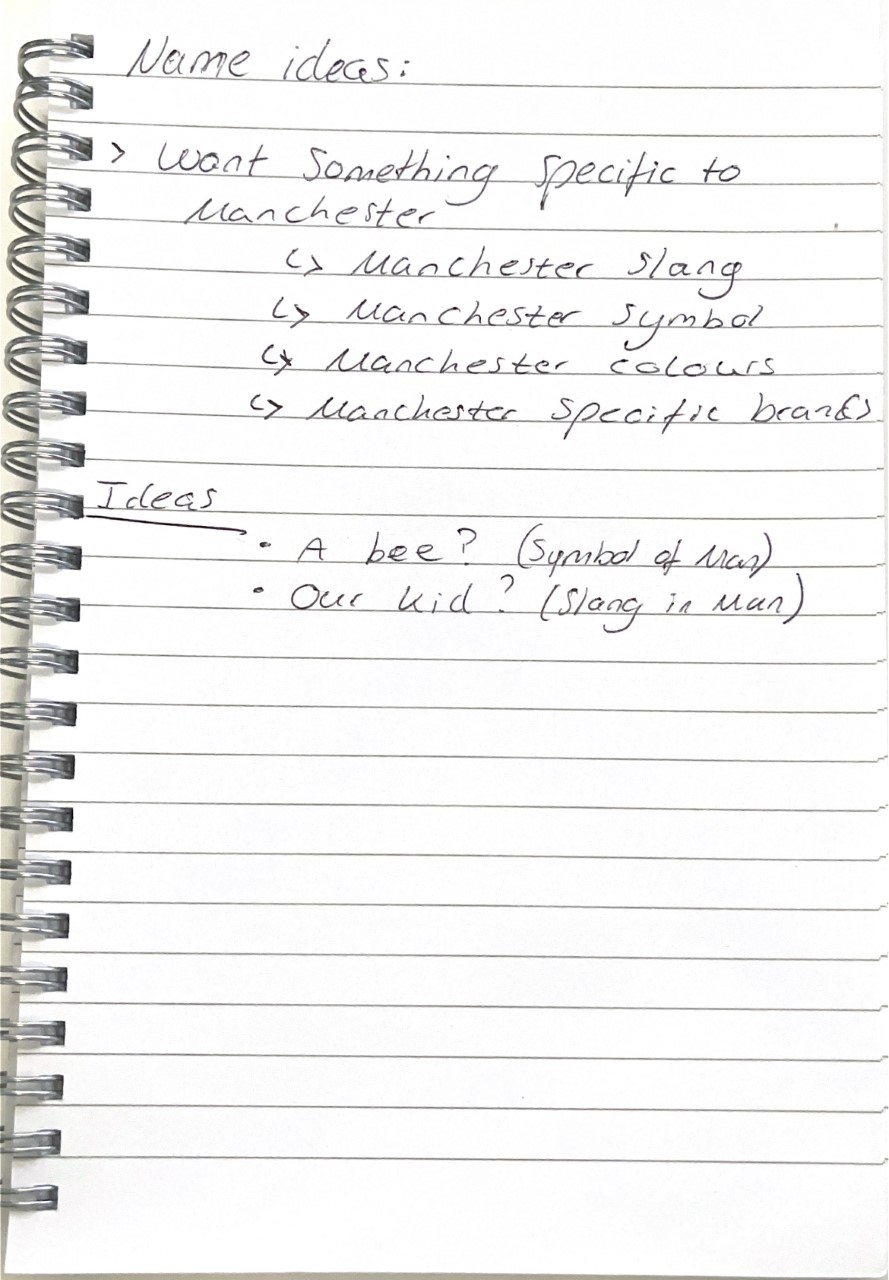 Name ideas:
> Want something specific to
Manchester
↳ Manchester slang
↳ Manchester symbol
↳ Manchester colours
↳ Manchester specific brands
Ideas
• A bee? (Symbol of Man)
• Our kid? (Slang in Man)